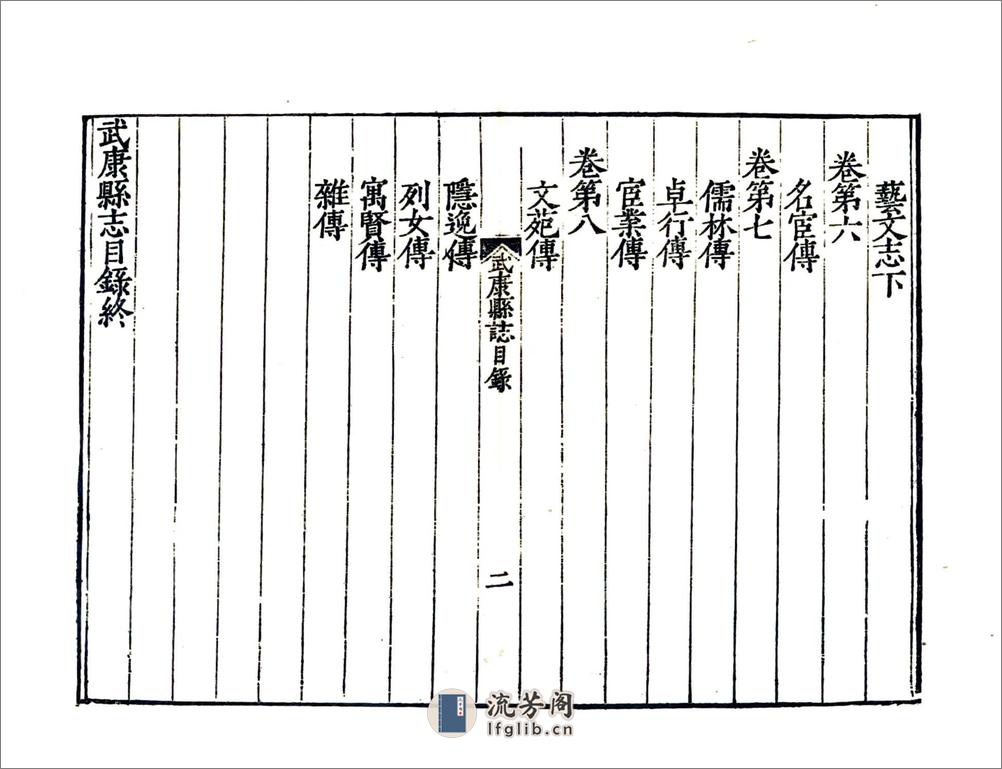 藝文志下
卷第六
名宦傳
卷第七
儒林傳
卓行傳
宦業傳
卷第八
文苑傳
武康縣誌目錄
二
隱逸傳
列女傳
寓賢傳
雜傳
武康縣志目錄終
流芳阁
lfglib.cn